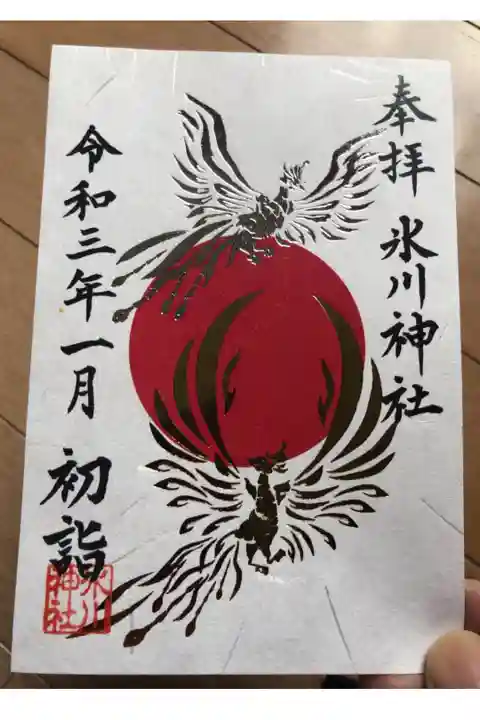 奉拝 氷川神社
令和三年一月 初詣
氷川
神社